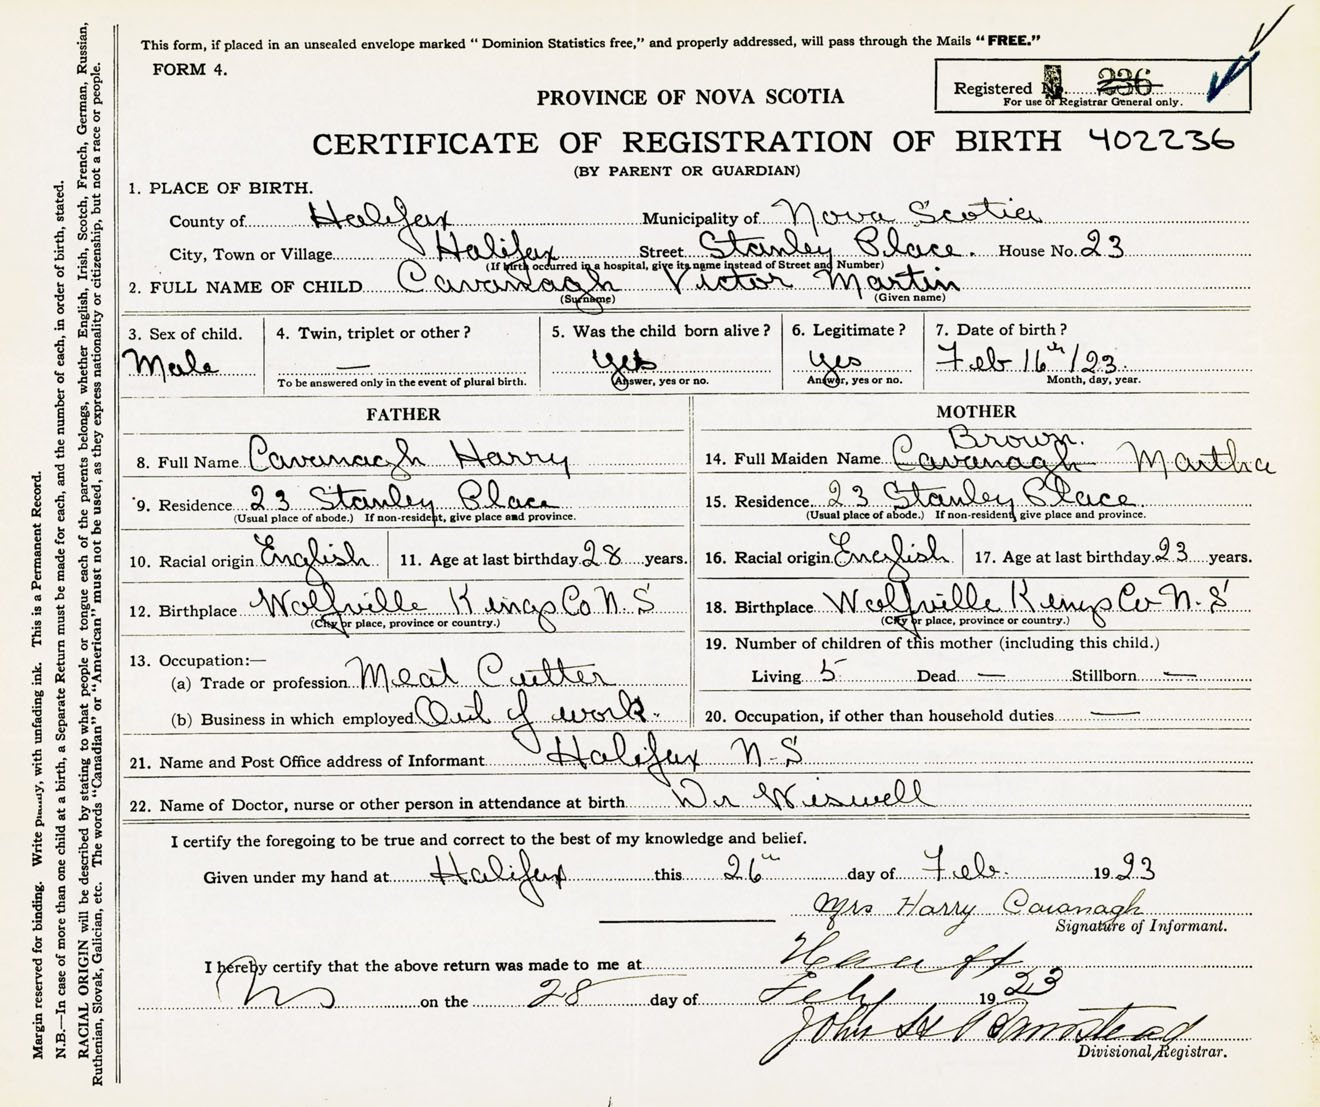 This form, if placed in an unsealed envelope marked “ Dominion Statistics free,” and properly addressed, will pass through the Mails “ FREE.”
FORM 4.
Registered No. 236
For use of Registrar General only.
PROVINCE OF NOVA SCOTIA
CERTIFICATE OF REGISTRATION OF BIRTH 402236
(BY PARENT OR GUARDIAN)
1. PLACE OF BIRTH.
County of Halifax Municipality of Nova Scotia
City, Town or Village Halifax Street Stanley Place. House No. 23
(If birth occurred in a hospital, give its name instead of Street and Number)
2. FULL NAME OF CHILD Cavanagh Victor Martin
(Surname) (Given name)
3. Sex of child. 4. Twin, triplet or other? 5. Was the child born alive? 6. Legitimate? 7. Date of birth?
Male — yes yes Feb 16th /23.
To be answered only in the event of plural birth. Answer, yes or no. Answer, yes or no. Month, day, year.
FATHER
8. Full Name Cavanagh Harry
9. Residence 23 Stanley Place
(Usual place of abode.) If non-resident, give place and province.
10. Racial origin English 11. Age at last birthday 28 years.
12. Birthplace Wolfville Kings Co N. S
(City or place, province or country.)
13. Occupation:—
(a) Trade or profession Meat Cutter
(b) Business in which employed Out of work.
MOTHER
Brown.
14. Full Maiden Name Cavanagh Martha
15. Residence 23 Stanley Place
(Usual place of abode.) If non-resident, give place and province.
16. Racial origin English 17. Age at last birthday 23 years.
18. Birthplace Wolfville Kings Co N. S
(City or place, province or country.)
19. Number of children of this mother (including this child.)
Living 5 Dead — Stillborn —
20. Occupation, if other than household duties —
21. Name and Post Office address of Informant Halifax N-S
22. Name of Doctor, nurse or other person in attendance at birth Dr Wiswell
I certify the foregoing to be true and correct to the best of my knowledge and belief.
Given under my hand at Halifax this 26th day of Feb. 1923
Mrs Harry Cavanagh
Signature of Informant.
I hereby certify that the above return was made to me at
NS on the 28 day of Feby 1923
John
Divisional Registrar.
Margin reserved for binding. Write plainly, with unfading ink. This is a Permanent Record.
N.B.—In case of more than one child at a birth, a Separate Return must be made for each, and the number of each, in order of birth, stated.
RACIAL ORIGIN will be described by stating to what people or tongue each of the parents belongs, whether English, Irish, Scotch, French, German, Russian,
Ruthenian, Slovak, Galician, etc. The words “Canadian” or “American” must not be used, as they express nationality or citizenship, but not a race or people.